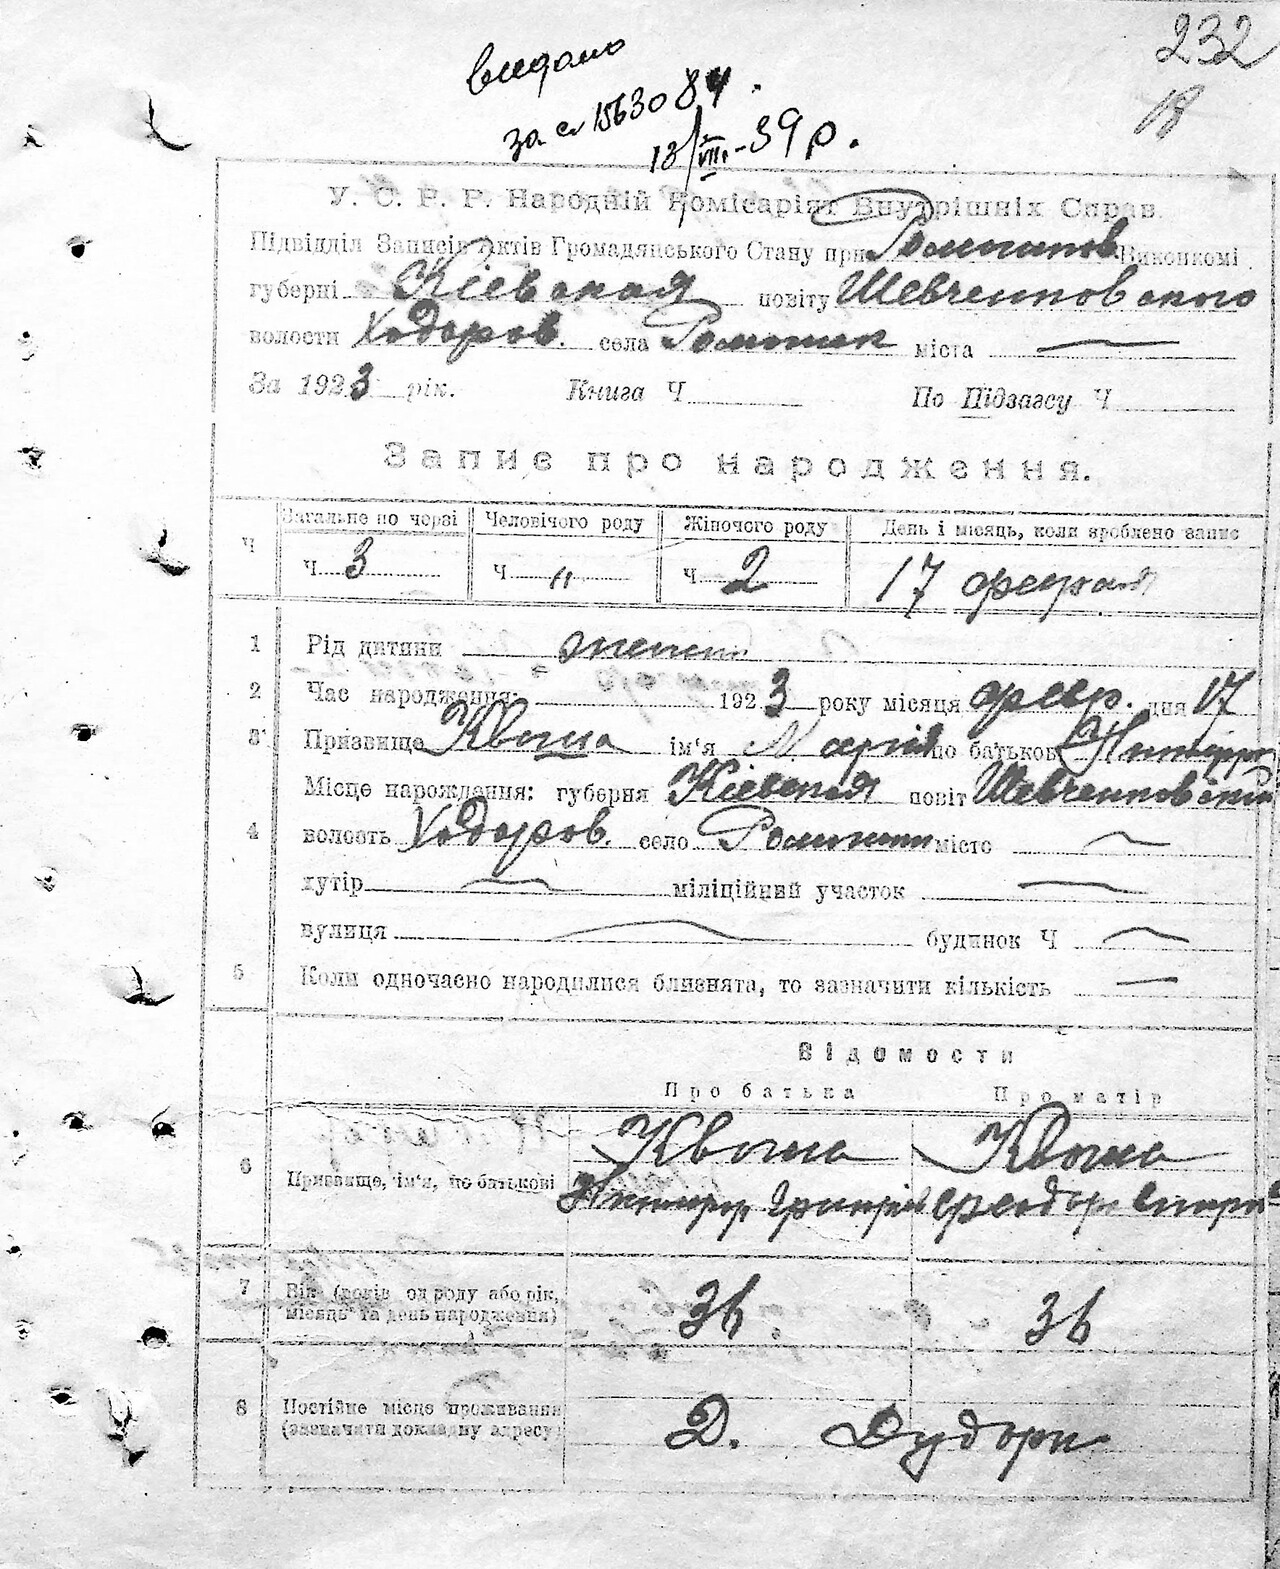 232
18
видано
за с. 1563084.
13/VIII-39 р.
У. С. Р. Р. Народній Комісаріят Внутрішніх Справ.
Підвідділ Записів Актів Громадянського Стану при Виконкомі
губерні Кіевская повіту Шевченковского
волости Ходоров. села міста —
За 1923 рік. Книга Ч По Підзагсу Ч
Запис про народження.
Ч Загальне по черзі Человічого роду Жіночого роду День і місяць, коли зроблено запис
Ч 3 Ч " Ч 2 17 февраля
1 Рід дитини женск
2 Час народження: 1923 року місяця февр. дня 17
3 Призвище Квоша ім'я по батькові
Місце нарождання: губерня Кіевская повіт Шевченковский
4 волость Ходоров. село місто —
хутір — міліційний участок —
вулиця — будинок Ч —
5 Коли одночасно народилися близнята, то зазначити кількість —
Відомости
Про батька Про матір
6 Призвище, ім'я, по батькові Квоша Квоша
Григор
7 Вік (років од роду або рік, місяць та день народження) 36 36
8 Постійне місце проживання (зазначити докладну адресу) Д. Дудари